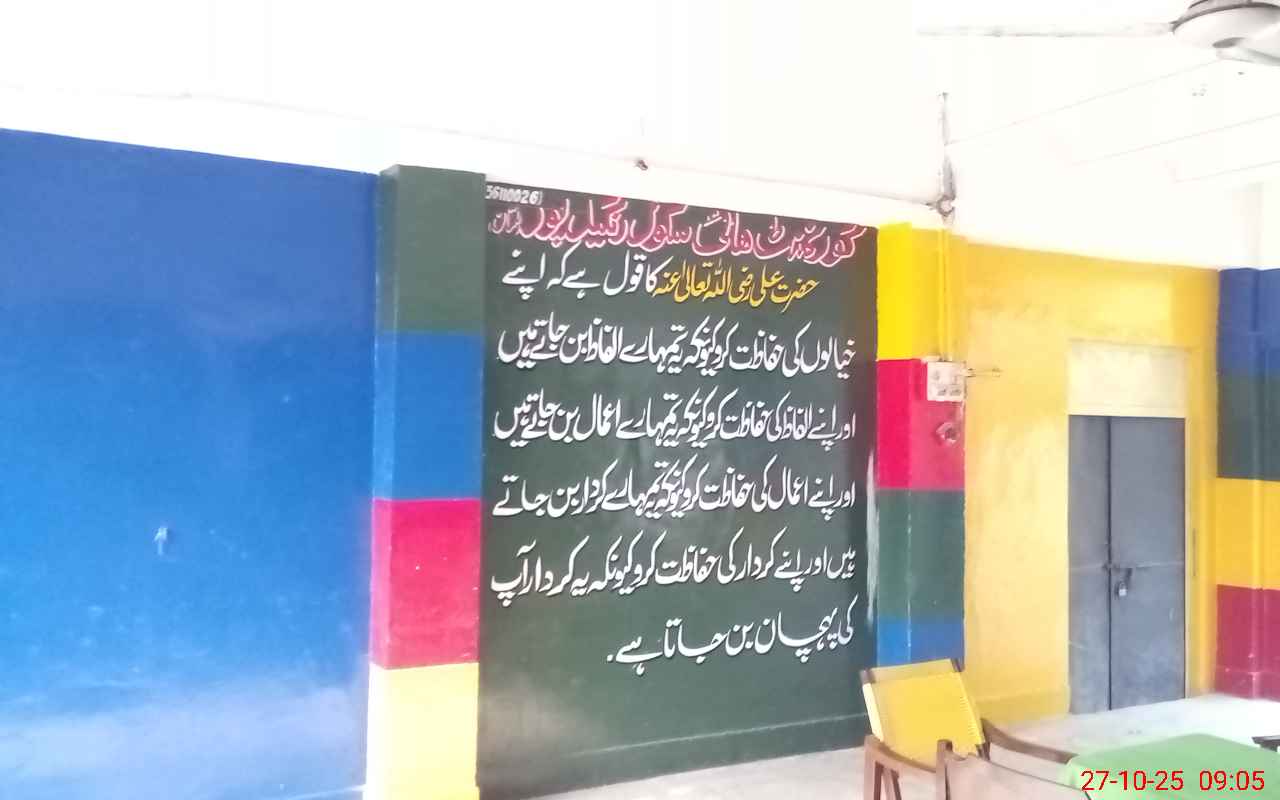 36110026
گورنمنٹ ہائی سکول رکھیل پور ملتان
حضرت علی رضی اللہ تعالیٰ عنہ کا قول ہے کہ اپنے
خیالوں کی حفاظت کرو کیونکہ یہ تمہارے الفاظ بن جاتے ہیں
اور اپنے الفاظ کی حفاظت کرو کیونکہ یہ تمہارے اعمال بن جاتے ہیں
اور اپنے اعمال کی حفاظت کرو کیونکہ یہ تمہارے کردار بن جاتے
ہیں اور اپنے کردار کی حفاظت کرو کیونکہ یہ کردار آپ
کی پہچان بن جاتا ہے۔
27-10-25 09:05